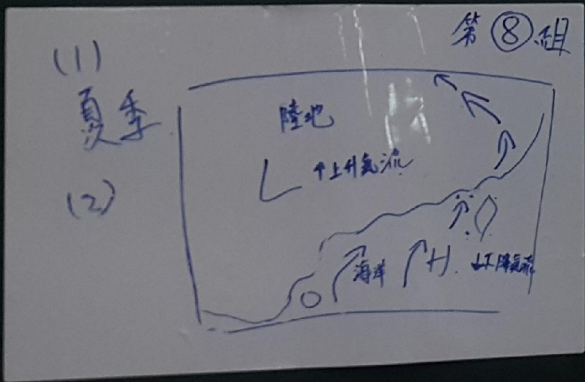 第⑧組
(1)
夏季
(2)
陸地
L
↑上升氣流
海洋
H
↓下降氣流